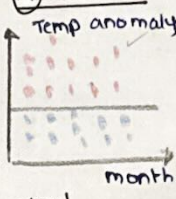 Temp anomaly
month